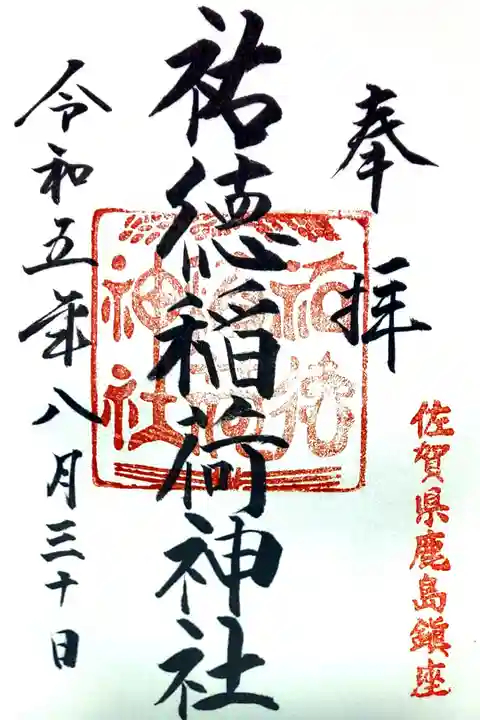 奉拝
佐賀県鹿島鎮座
祐徳稲荷神社
祐徳稲荷神社
令和五年八月三十日